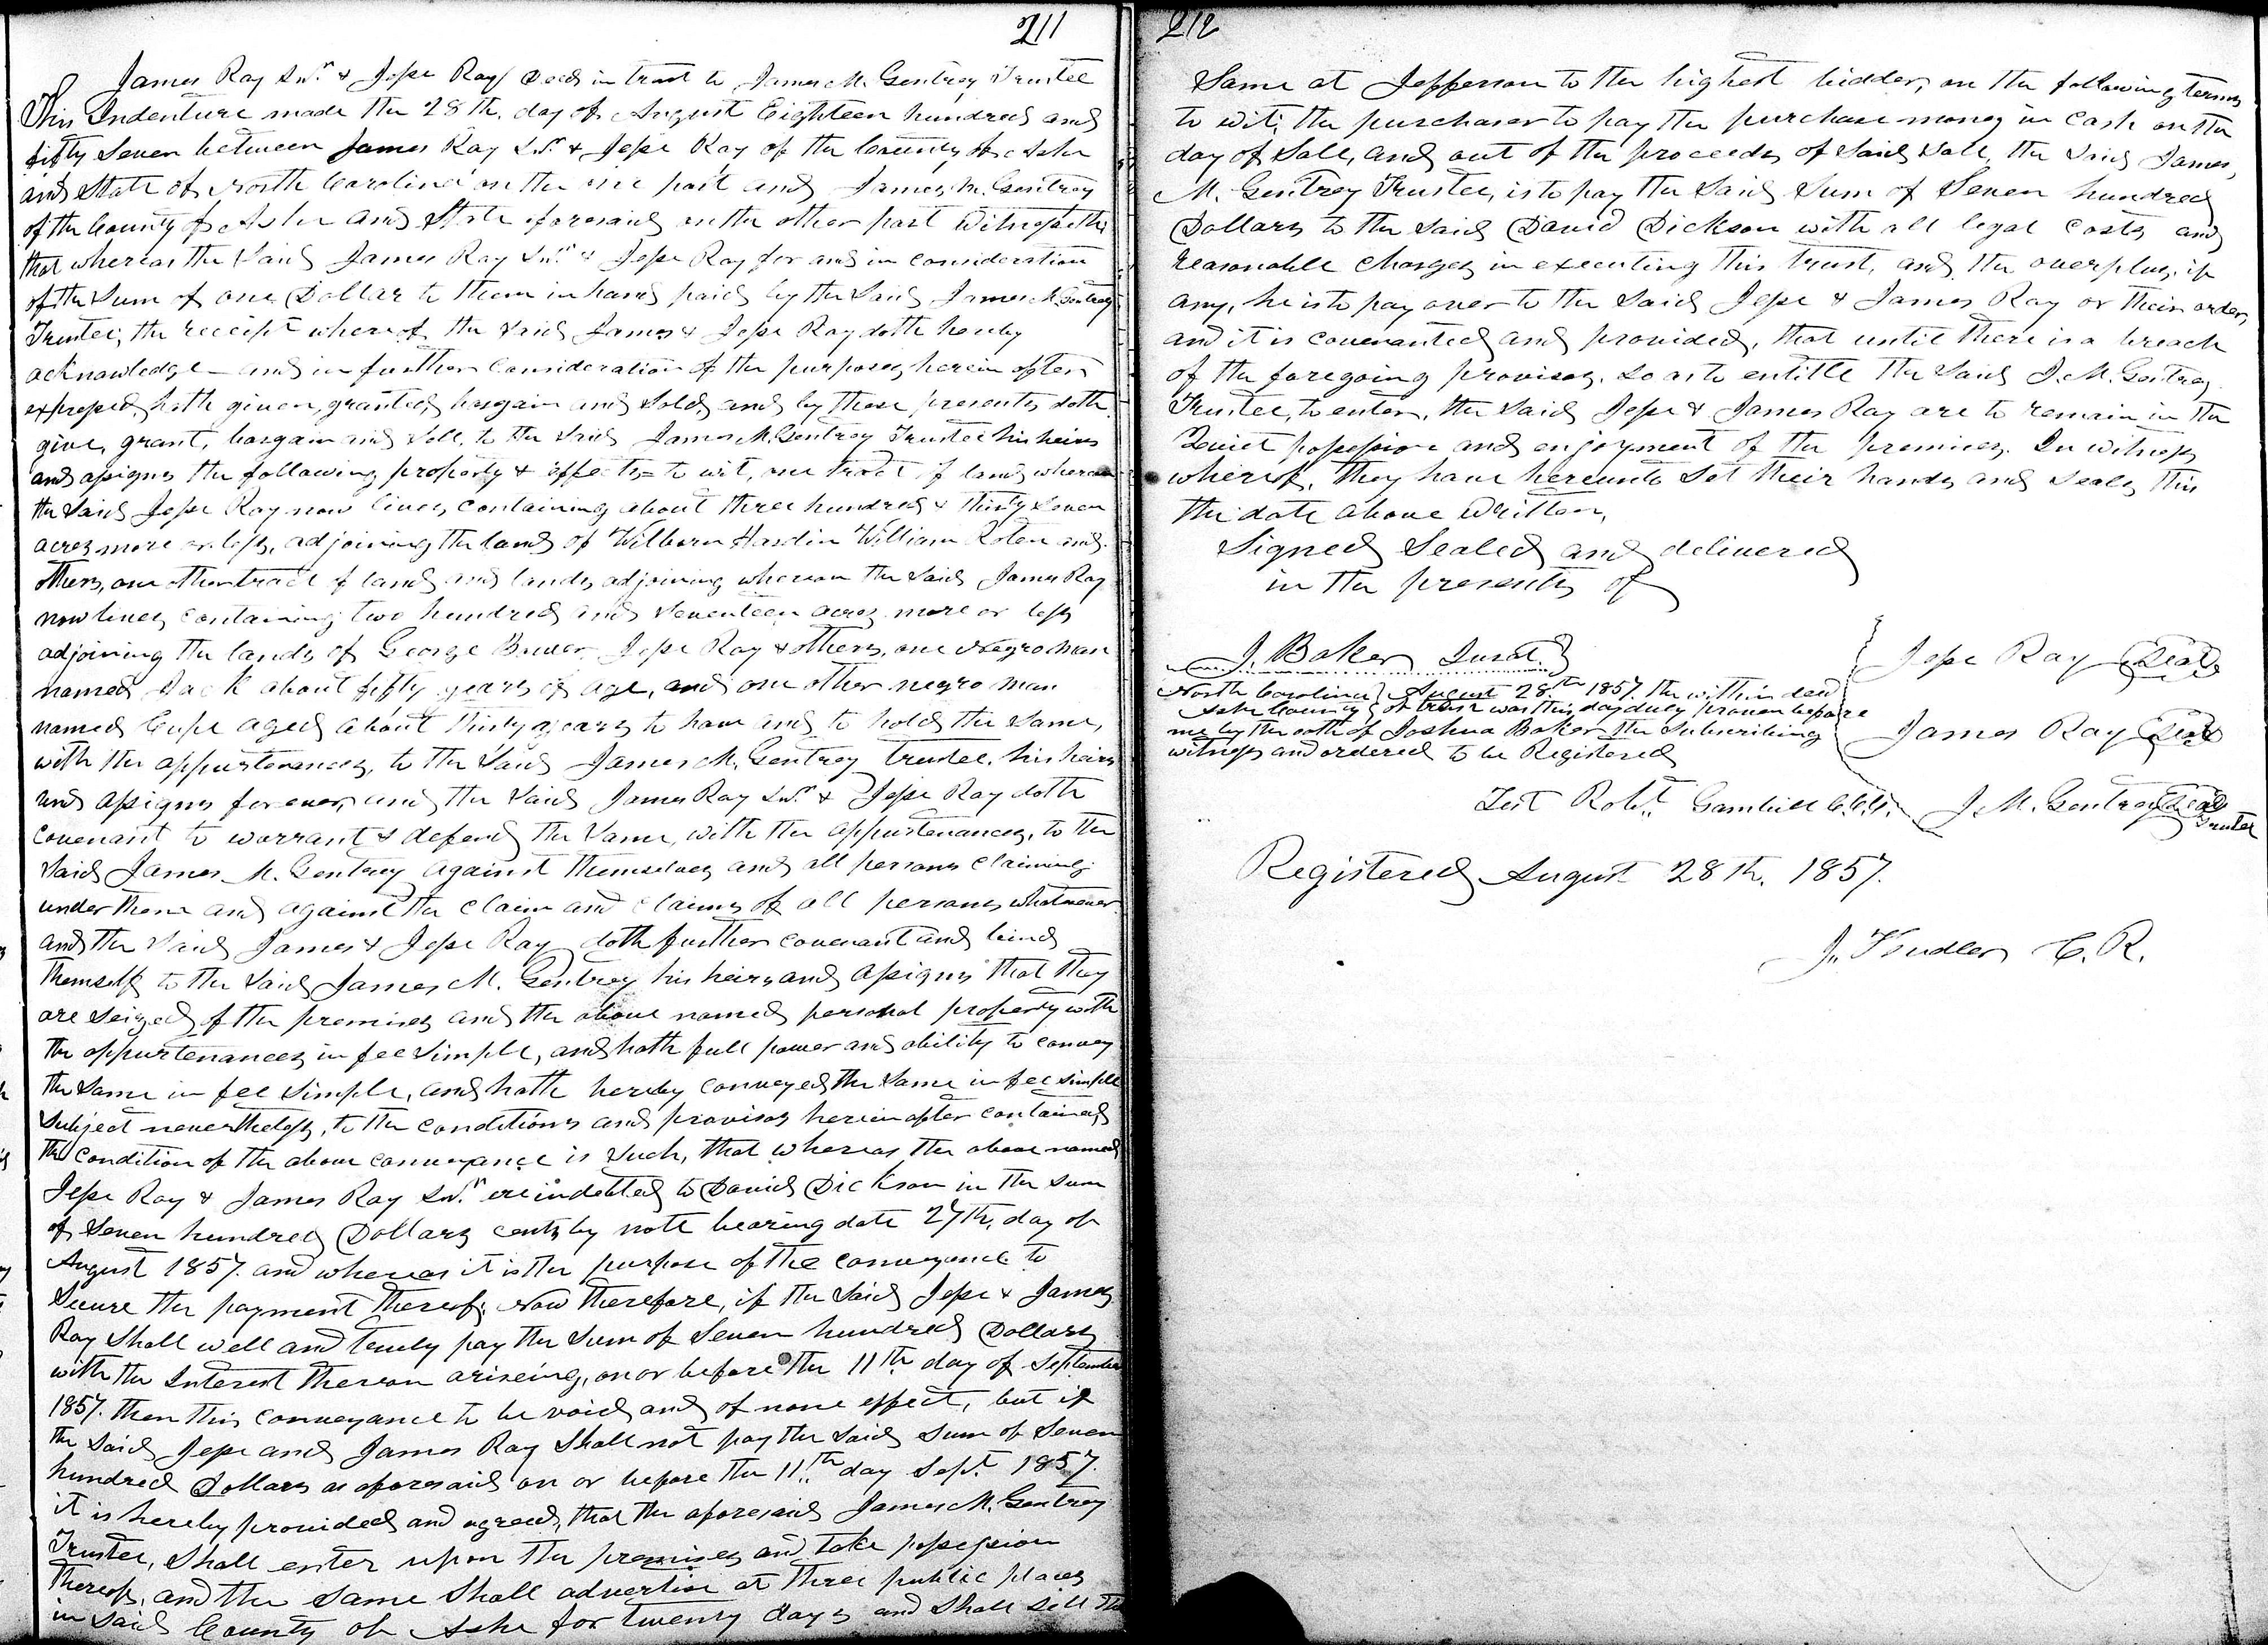 211
James Ray Snr. & Jesse Ray Deed in trust to James M. Gentrey Trustee
This Indenture made the 28th. day of August Eighteen hundred and
fifty Seven between James Ray Snr. & Jesse Ray of the County of Ashe
and State of North Carolina on the one part and James M. Gentrey
of the County of Ashe and State aforesaid on the other part Witnesseth
that whereas the Said James Ray Snr. & Jesse Ray for and in consideration
of the Sum of one Dollar to them in hand paid by the Said James M. Gentrey
Trustee, the receipt whereof the Said James & Jesse Ray doth hereby
acknowledge and in further consideration of the purposes herein after
expressed, hath given, granted, bargain and Sold, and by these presents doth
give, grant, bargain and Sell, to the Said James M. Gentrey Trustee his heirs
and assigns the following property & effects = to wit, one tract of land whereon
the Said Jesse Ray now lives, containing about three hundred & thirty Seven
acres more or less, adjoining the lands of Wilborn Hardin William Roten and
others, one other tract of land and lands adjoining whereon the Said James Ray
now lives, containing two hundred and Seventeen acres more or less
adjoining the lands of George Bower, Jesse Ray & others, one Negro man
named Jack about fifty years of age, and one other negro man
named Cupe aged about thirty years to have and to hold the Same,
with the appurtenances, to the Said James M. Gentrey trustee. his heirs
and assigns forever, and the Said James Ray Snr. & Jesse Ray doth
covenant to warrant & defend the Same, with the appurtenances, to the
Said James M. Gentrey against themselves and all persons claiming
under them and against the claim and claims of all persons whatsoever
and the Said James & Jesse Ray doth further covenant and bind
themself to the Said James M. Gentrey his heirs and assigns that they
are Seized of the premises and the above named personal property with
the appurtenances in fee Simple, and hath full power and ability to convey
the Same in fee Simple, and hath hereby conveyed the Same in fee Simple
Subject nevertheless, to the conditions and provisos herein after contained
the condition of the above conveyance is Such, that whereas the above named
Jesse Ray & James Ray Snr. are indebted to David Dickson in the Sum
of Seven hundred Dollars cents by note bearing date 27th. day of
August 1857. and whereas it is the purpose of the conveyance to
Secure the payment thereof; Now therefore, if the Said Jesse & James
Ray Shall well and truly pay the Sum of Seven hundred Dollars
with the Interest thereon ariseing, on or before the 11th day of September
1857. then this conveyance to be void and of none effect, but if
the Said Jesse and James Ray Shall not pay the Said Sum of Seven
hundred Dollars as aforesaid on or before the 11th day Sept. 1857.
it is hereby provided and agreed, that the aforesaid James M. Gentrey
Trustee, Shall enter upon the premises and take possession
thereof, and the Same Shall advertise at three public places
in Said County of Ashe for twenty days and Shall Sell the
212
Same at Jefferson to the highest bidder, on the following terms
to wit; the purchaser to pay the purchase money in Cash on the
day of Sale, and out of the proceeds of Said Sale, the Said James,
M. Gentrey Trustee, is to pay the Said Sum of Seven hundred
Dollars to the Said David Dickson with all legal Costs and
reasonable charges in executing this trust, and the overplus, if
any, he is to pay over to the Said Jesse & James Ray or their order,
and it is covenanted and provided, that until there is a breach
of the foregoing provisos. So as to entitle the Said J. M. Gentrey
Trustee, to enter, the Said Jesse & James Ray are to remain in the
Quiet possession and enjoyment of the premises. In witness
whereof, they have hereunto Set their hands and Seals, this
the date above written,
Signed Sealed and delivered
in the presents of
J. Baker Jurat
Jesse Ray Seal
North Carolina August 28.th 1857. the within deed
Ashe County of trust was this day duly proven before
me by the oath of Joshua Baker the Subscribing
witness and ordered to be Registered
James Ray Seal
Test Robt. Gambill C.C.C.
J. M. Gentrey Seal
Trustee
Registered August 28th. 1857.
C. R.